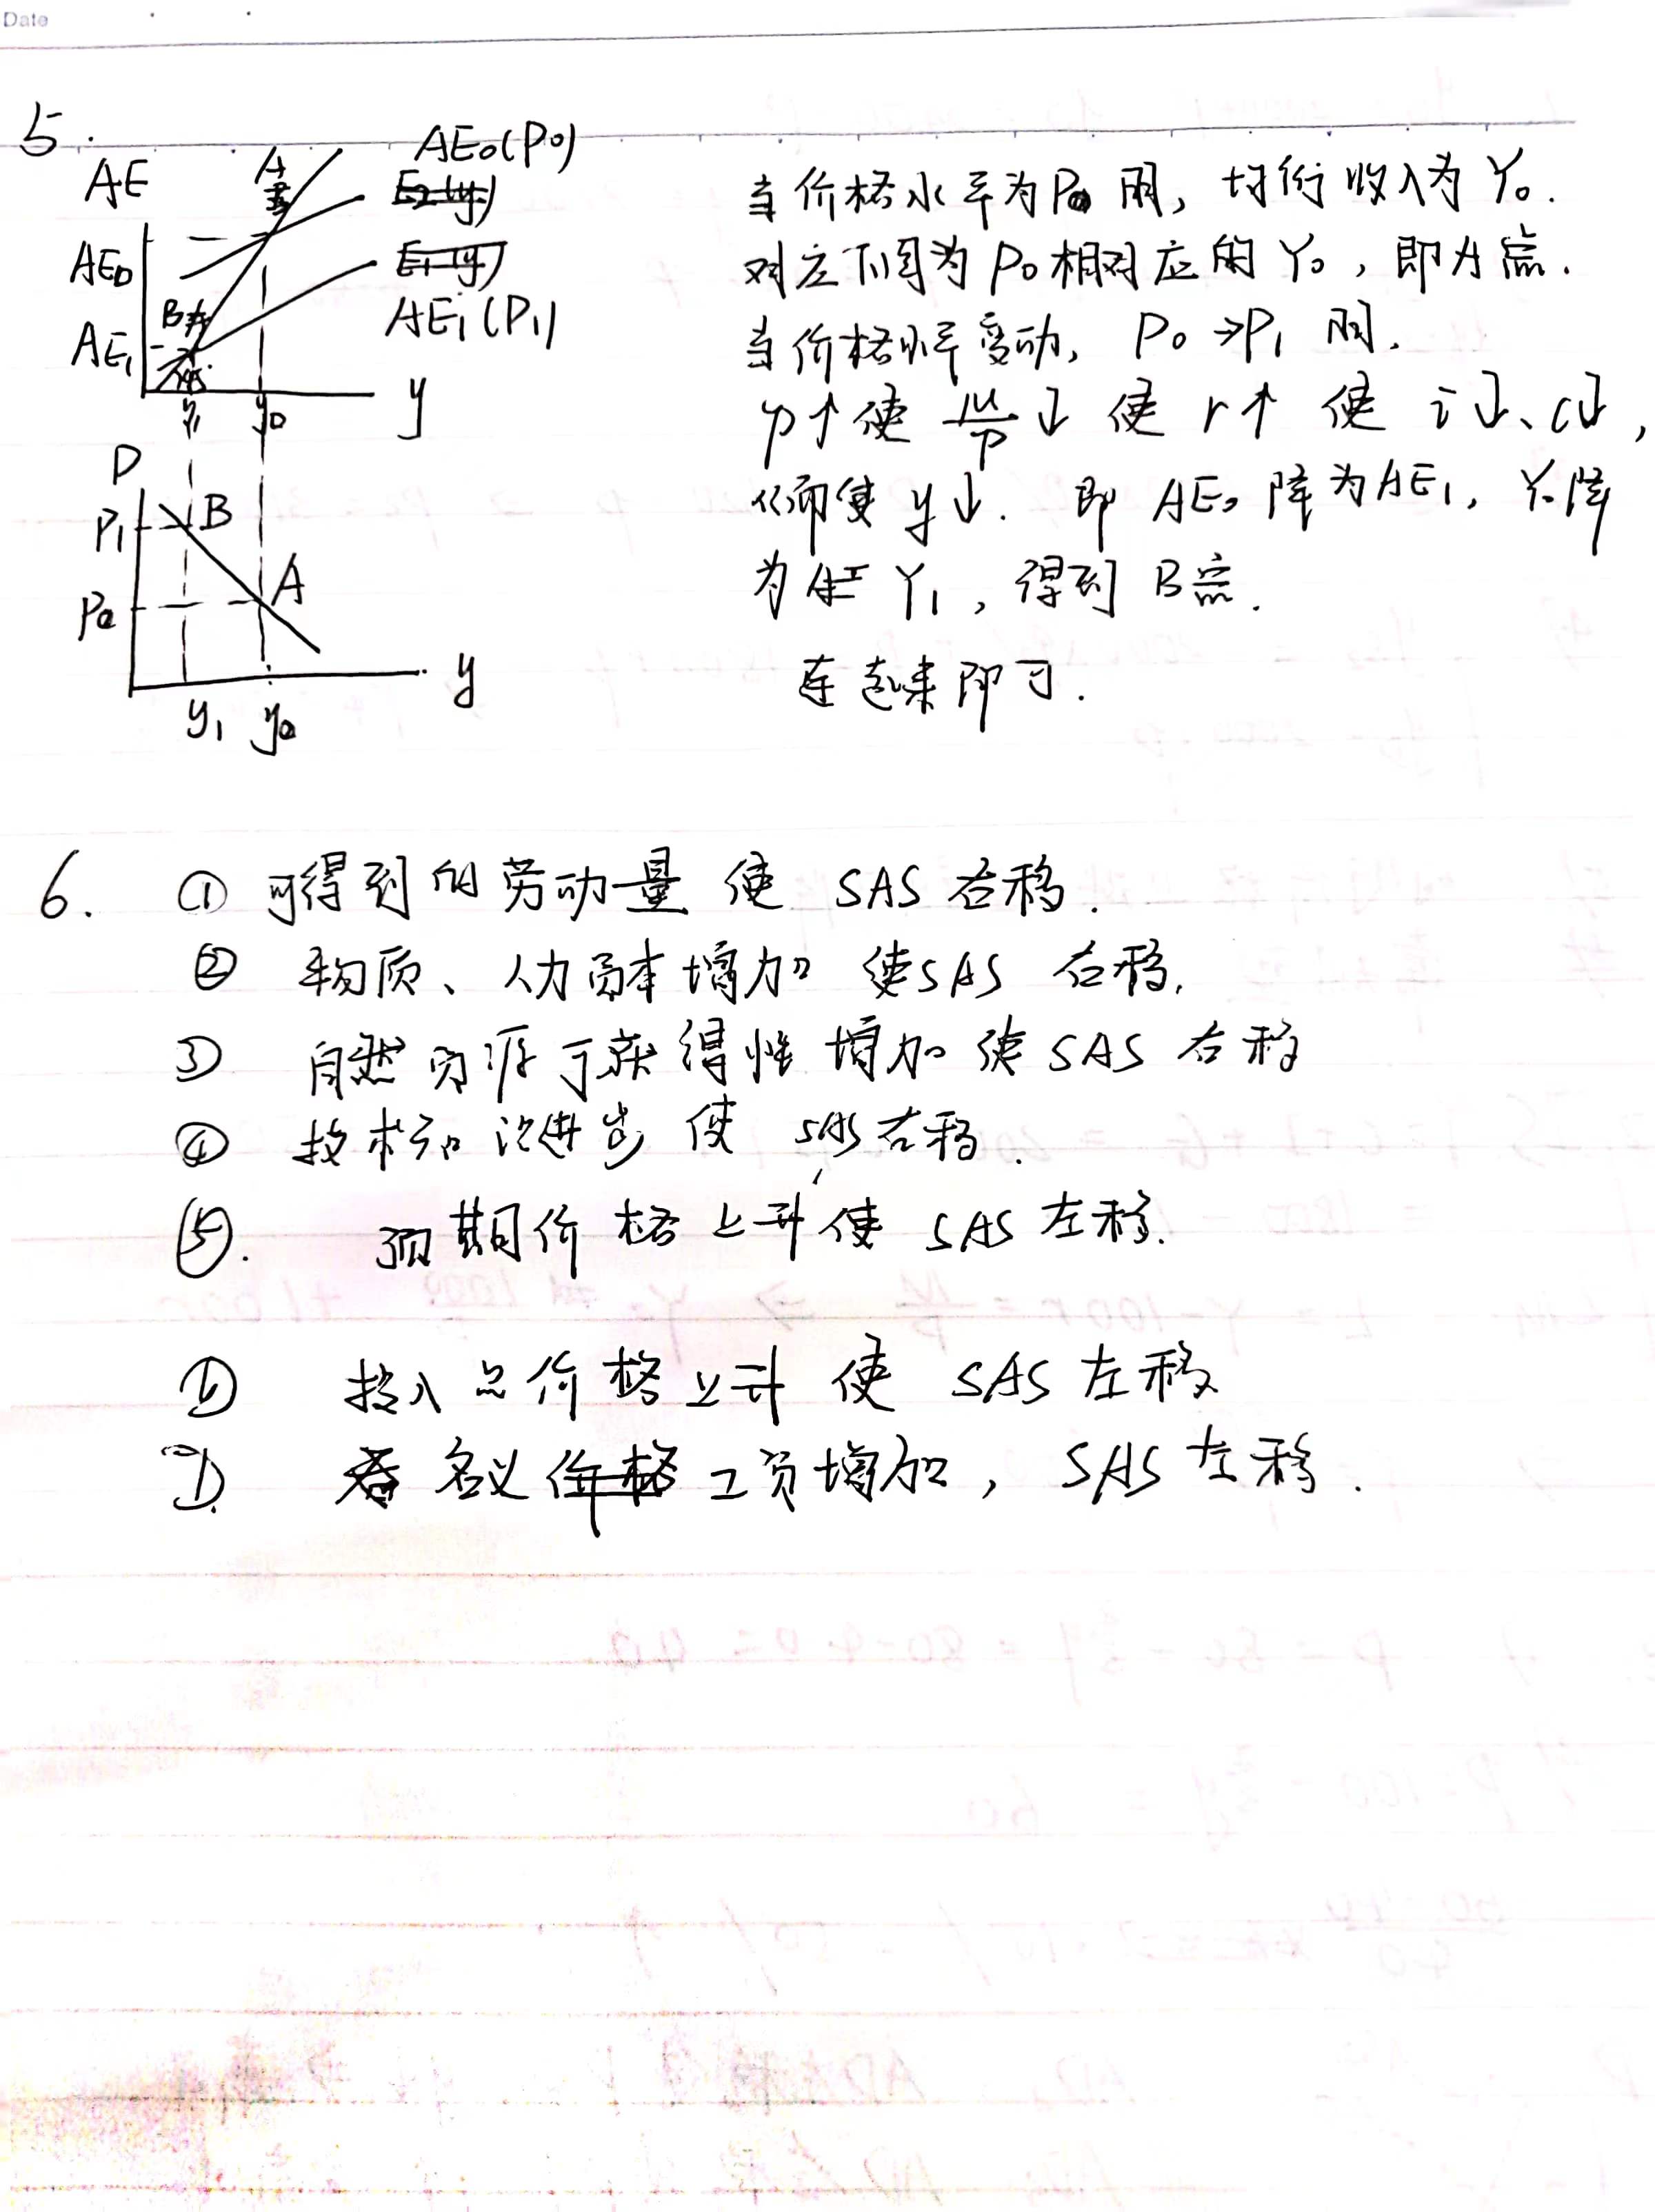 Date
5.
AE
A
AE₀(P₀)
AE₀
B
AE₁(P₁)
AE₁
y₁ y₀ y
P
P₁ B
P₀ A
y₁ y₀ y
当价格水平为P₀时, 均衡收入为Y₀.
对应下图为P₀相对应的Y₀, 即A点.
当价格水平变动, P₀→P₁时.
P↑使 M/P ↓ 使 r↑ 使 i↓、c↓,
从而使 y↓. 即 AE₀降为AE₁, Y₀降
为 Y₁, 得到B点.
连起来即可.
6. ① 可得到的劳动量 使 SAS 右移.
② 物质、人力资本增加 使SAS 右移.
③ 自然资源可获得性增加使SAS右移
④ 技术知识进步 使 SAS右移.
⑤. 预期价格上升使 SAS 左移.
投入品价格上升使 SAS左移
名义 工资增加, SAS左移.